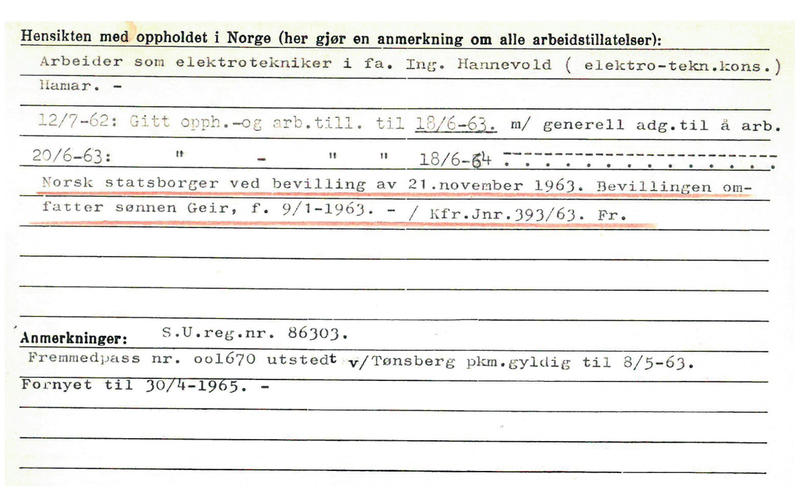 Hensikten med oppholdet i Norge (her gjør en anmerkning om alle arbeidstillatelser):
Arbeider som elektrotekniker i fa. Ing. Hannevold ( elektro-tekn.kons.)
Hamar. -
12/7-62: Gitt opph.-og arb.till. til 18/6-63. m/ generell adg.til å arb.
20/6-63: " - " " 18/6-64 . . . . . . . . . . . . .
Norsk statsborger ved bevilling av 21.november 1963. Bevillingen om-
fatter sønnen Geir, f. 9/1-1963. - / Kfr.Jnr.393/63. Fr.
Anmerkninger: S.U.reg.nr. 86303.
Fremmedpass nr. oo1670 utstedt v/Tønsberg pkm.gyldig til 8/5-63.
Fornyet til 30/4-1965. -